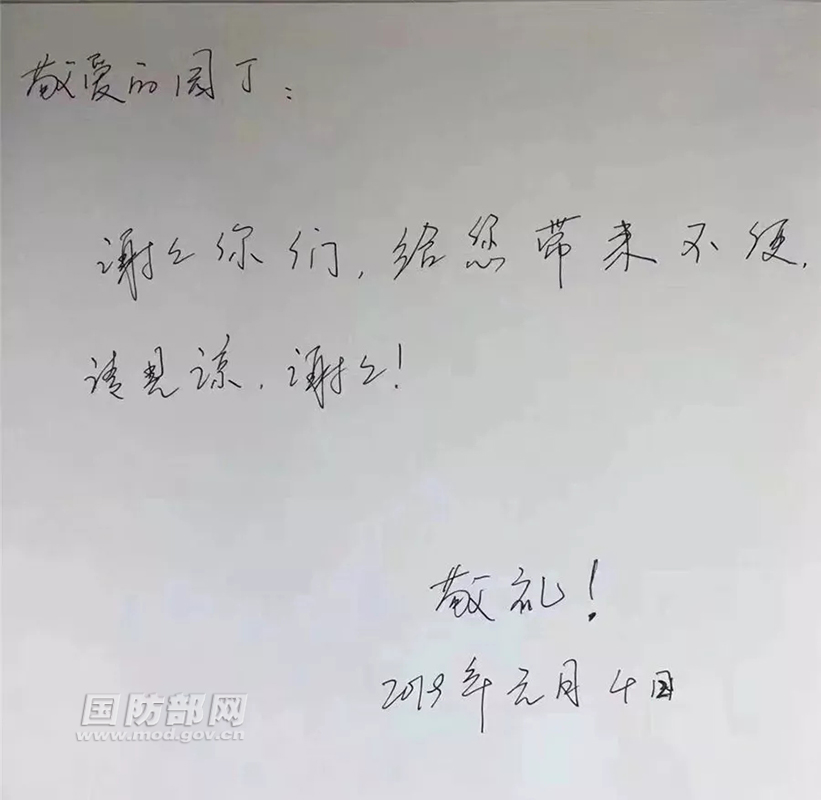 敬爱的园丁：
谢谢你们，给您带来不便，
请见谅，谢谢！
敬礼！
2019年元月4日
国防部网
www.mod.gov.cn